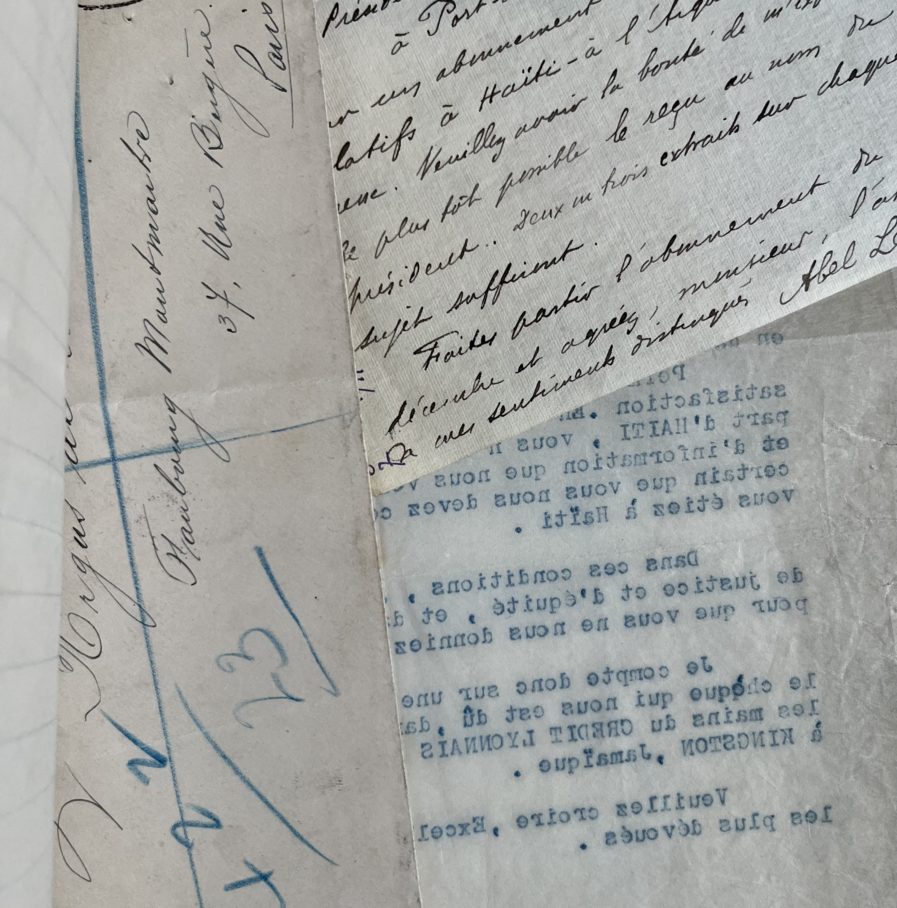 Argus
Faubourg Montmartre
37, Rue Bergère.
Paris
23
Présid
à Port-
un abonnement
latifs à Haïti - à l'Argu
Veuillez avoir la bonté de m'exp
le plus tôt possible le reçu au nom du
président.. Deux ou trois extraits sur chaque
sujet suffiront.
Faites partir l'abonnement du
décembre et agréez, monsieur, l'as
de mes sentiments distingués Abel Lé
en
satisfaction .En
part d'HAITI , vous n
et d'information que nous v
certain que vous nous devez c
vous étiez à Haïti .
Dans ces conditions ,
de justice et d'équité , et d
pour que vous ne nous donniez
Je compte donc sur une
le chèque qui nous est dû ,da
les mains du CREDIT LYONNAIS
à KINGSTON ,Jamaïque .
Veuillez croire ,Excel
les plus dévoués .